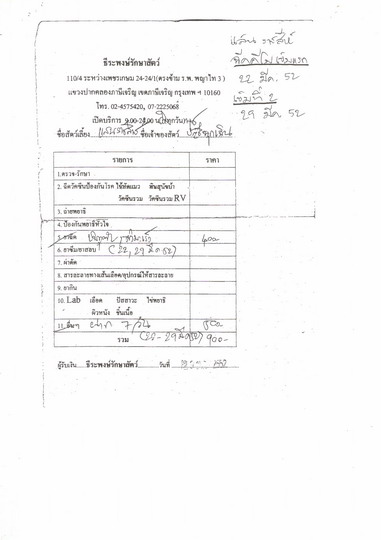 แสน ราสีห์
22 มีค. 52
เข็มที่ 2
29 มีค. 52
ธีระพงษ์รักษาสัตว์
110/4 ระหว่างเพชรเกษม 24-24/1(ตรงข้าม ร.พ. พญาไท 3 )
แขวงปากคลองภาษีเจริญ เขตภาษีเจริญ กรุงเทพ ฯ 10160
โทร. 02-4575420, 07-2225068
เปิดบริการ 9.00-20.00 น.(ทุกวัน)
ชื่อสัตว์เลี้ยง ชื่อเจ้าของสัตว์
รายการ ราคา
1.ตรวจ-รักษา
2. ฉีดวัคซีนป้องกันโรค ไข้หัดแมว พิษสุนัขบ้า
วัคซีนรวม วัคซีนรวม RV
3. ถ่ายพยาธิ
4. ป้องกันพยาธิหัวใจ
5. ยาฉีด 400
6. ยาซึม/ยาสลบ (22, 29 มีค 52)
7. ผ่าตัด
8. สารละลายทางเส้นเลือด/อุปกรณ์ให้สารละลาย
9. ยากิน
10. Lab เลือด ปัสสาวะ ไข่พยาธิ
ผิวหนัง ชิ้นเนื้อ
11. อื่นๆ ฝาก 7 วัน 500
รวม (22 - 29 มีค 52) 900-
ผู้รับเงิน ธีระพงษ์รักษาสัตว์ วันที่